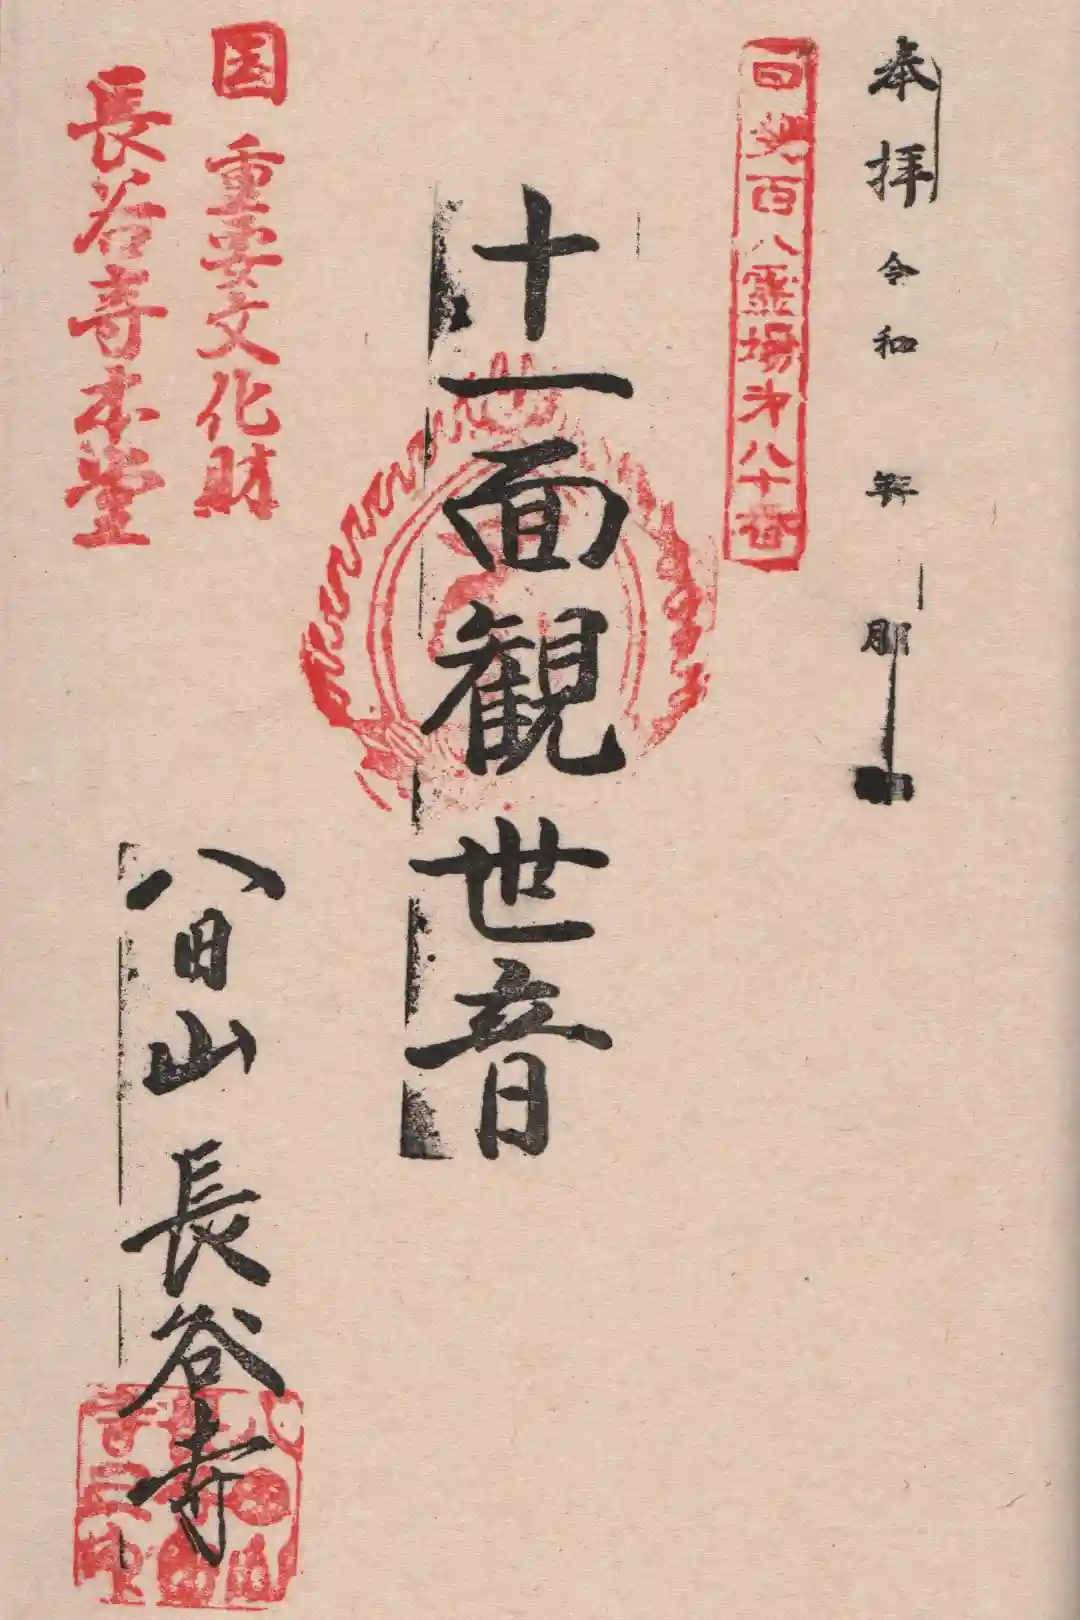 奉拝 令和 年 月 日
百八霊場第八十番
十一面観世音
国 重要文化財
長谷寺本堂
八日山 長谷寺